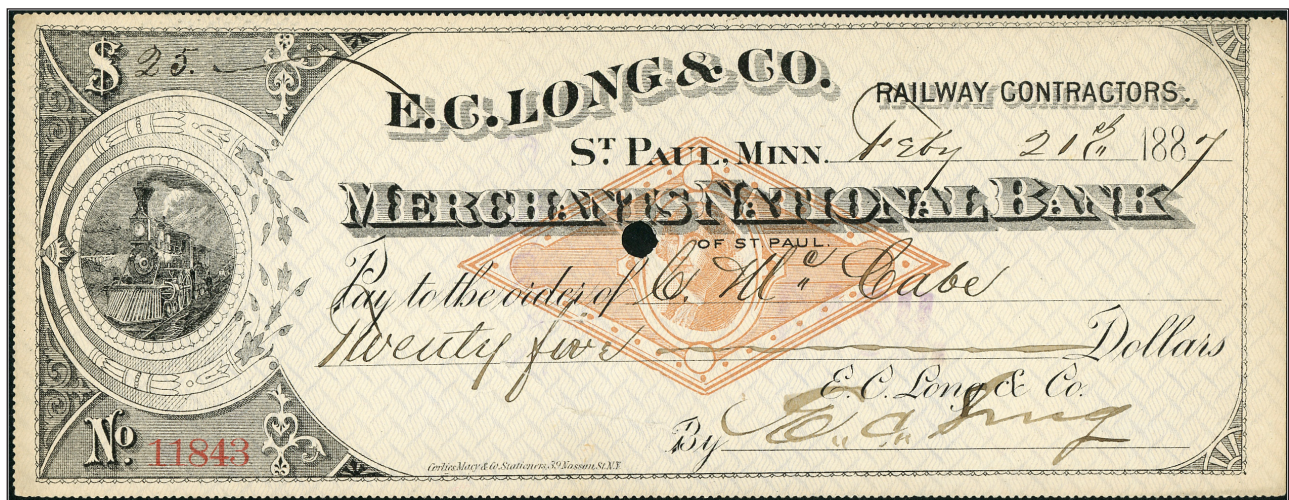 $ 25.
E.C. LONG & CO.
RAILWAY CONTRACTORS.
ST PAUL, MINN. Feby 21st 1887
MERCHANTS NATIONAL BANK
OF ST PAUL.
Pay to the order of C. Mc Cabe
Twenty five Dollars
E.C. Long & Co.
By E.C. Long
No 11843
Corlies Macy & Co. Stationers, 39 Nassau St. N.Y.